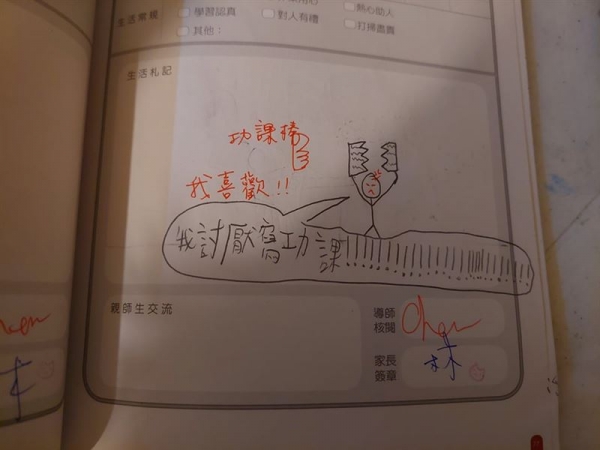 生活常規
學習認真
對人有禮
熱心助人
其他：
打掃盡責
生活札記
功課棒
我喜歡!!
我討厭寫功課!!!!!!!!!!!!!!!!!!!!!!!!!!!!!!
親師生交流
導師
核閱
Chen
家長
簽章
林